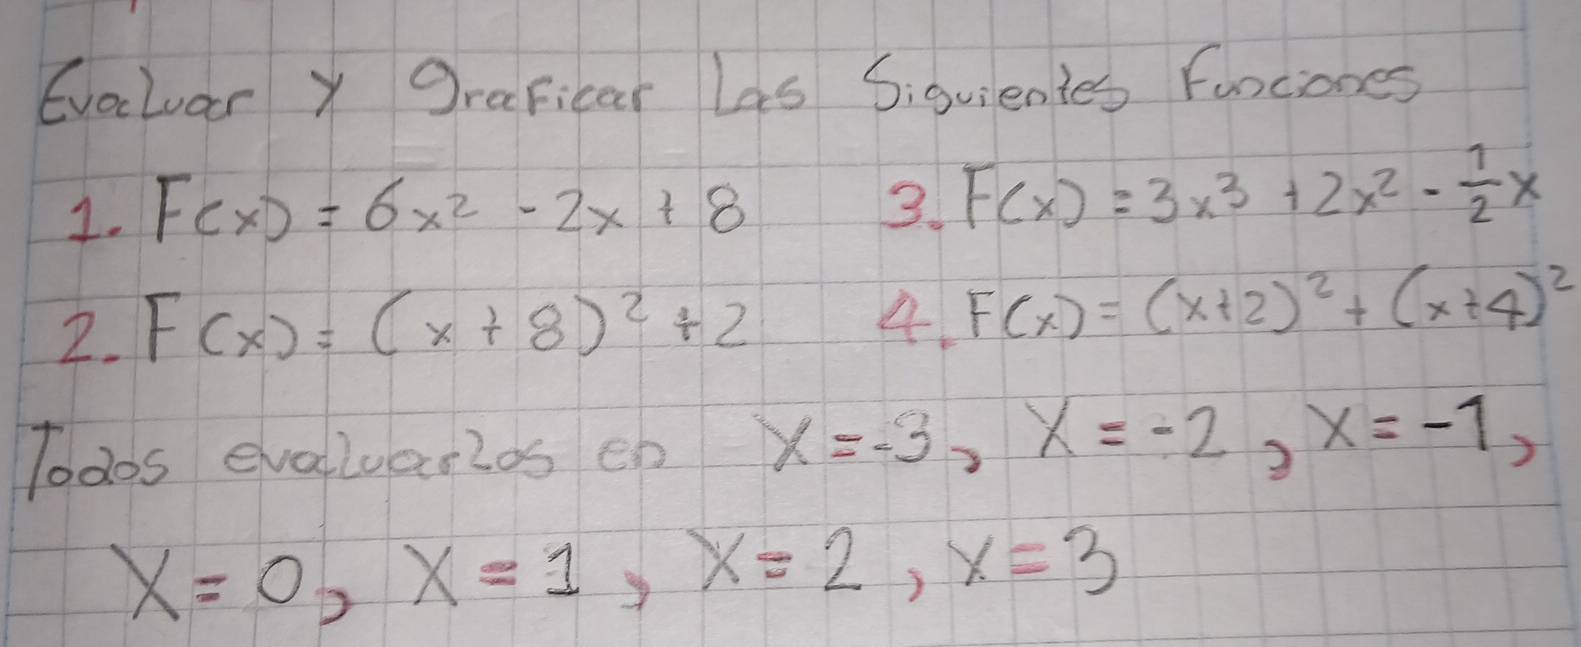 Evaluar y graficar las Siguientes Funciones
1. F(x) = 6x² - 2x + 8
3. F(x) = 3x³ + 2x² - 1/2 x
2. F(x) = (x + 8)² + 2
4. F(x) = (x+2)² + (x+4)²
Todos evaluarlos en X = -3, X = -2, X = -1,
X = 0, X = 1, X = 2, X = 3